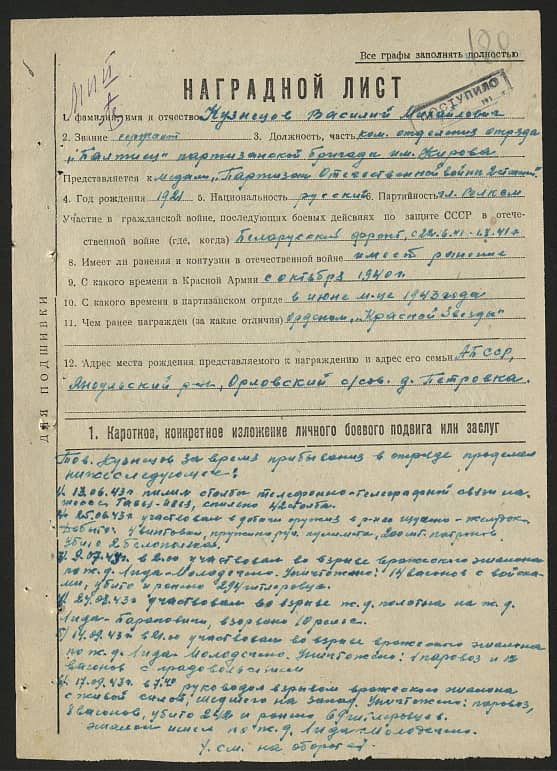 Все графы заполнять полностью
ПОСТУПИЛО
НАГРАДНОЙ ЛИСТ
1. фамилия, имя и отчество Кузнецов Василий Михайлович
2. Звание сержант 3. Должность, часть ком. отделения отряда
"Балтиец" партизанской бригады им. Кирова
Представляется к медали "Партизан Отечественной войны 2 степени"
4. Год рождения 1921 5. Национальность русский 6. Партийность чл. Ролксм
Участие в гражданской войне, последующих боевых действиях по защите СССР в отече-
ственной войне (где, когда) Белорусский фронт, с 22.6.41
8. Имеет ли ранения и контузии в отечественной войне имеет ранение
9. С какого времени в Красной Армии с октября 1940 г.
10. С какого времени в партизанском отряде в июне м-це 1943 года
11. Чем ранее награжден (за какие отличия) Орденом "Красной Звезды"
12. Адрес места рождения представляемого к награждению и адрес его семьи
р-н, Орловский с/сов. д. Петровка.
ДЛЯ ПОДШИВКИ
1. Короткое, конкретное изложение личного боевого подвига или заслуг
Тов. Кузнецов за время прибывания в отряде проделал
нижеследующее:
1/ 13.06.43г пилил столбы телефонно-телеграфной связи на
шоссе спилено 42 столба.
2/ 25.06.43г участвовал в добычи оружия в р-не Щучно - Желудок
Добыто: 4 винтовки, пружина руч. пулемета, 200 шт. патронов.
Убито 2 белополяка.
3/ 9.07.43г в 2.00 участвовал во взрыве вражеского эшелона
по ж.д. Лида-Молодечно. Уничтожено: 14 вагонов с войска-
ми, убито и ранено 294 гитлеровца.
4/ 24.08.43г участвовал во взрыве ж.д. полотна на ж.д.
Лида-Барановичи, взорвано 10 рельс.
5/ 14.09.43г в 21.00 участвовал во взрыве вражеского эшелона
по ж.д. Лида-Молодечно. Уничтожено: 1 паровоз и 12
вагонов с продовольствием
6/ 17.09.43г в руководил взрывом вражеского эшелона
с живой силой, шедшего на запад. Уничтожено: паровоз,
8 вагонов, убито 242 и ранено 69 гитлеровцев.
Эшелон шел по ж.д. Лида-Молодечно.
см. на обороте